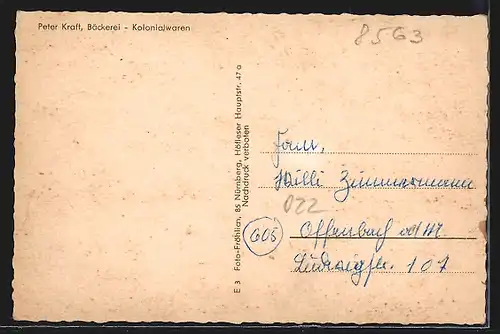 Peter Kraft, Bäckerei - Kolonialwaren
8563
E 3 Foto-Fröhlich, 85 Nürnberg, Höfleser Hauptstr. 47 a
Nachdruck verboten
Fam.
Willi Zimmermann
022
605 Offenbach a/M.
Ludwigstr. 107